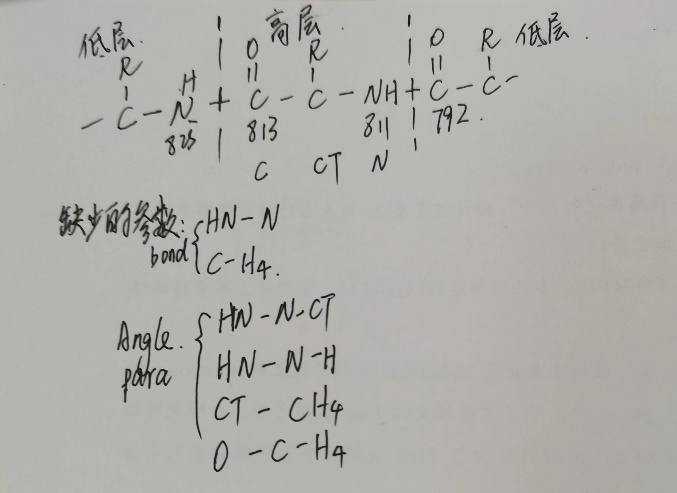 低层. 高层 低层.
R H O R O R
— C — N + C — C — NH + C — C —
825 813 811 792.
C CT N
缺少的参数:
bond { HN — N
C — H4.
Angle. para { HN — N — CT
HN — N — H
CT — CH4
O — C — H4